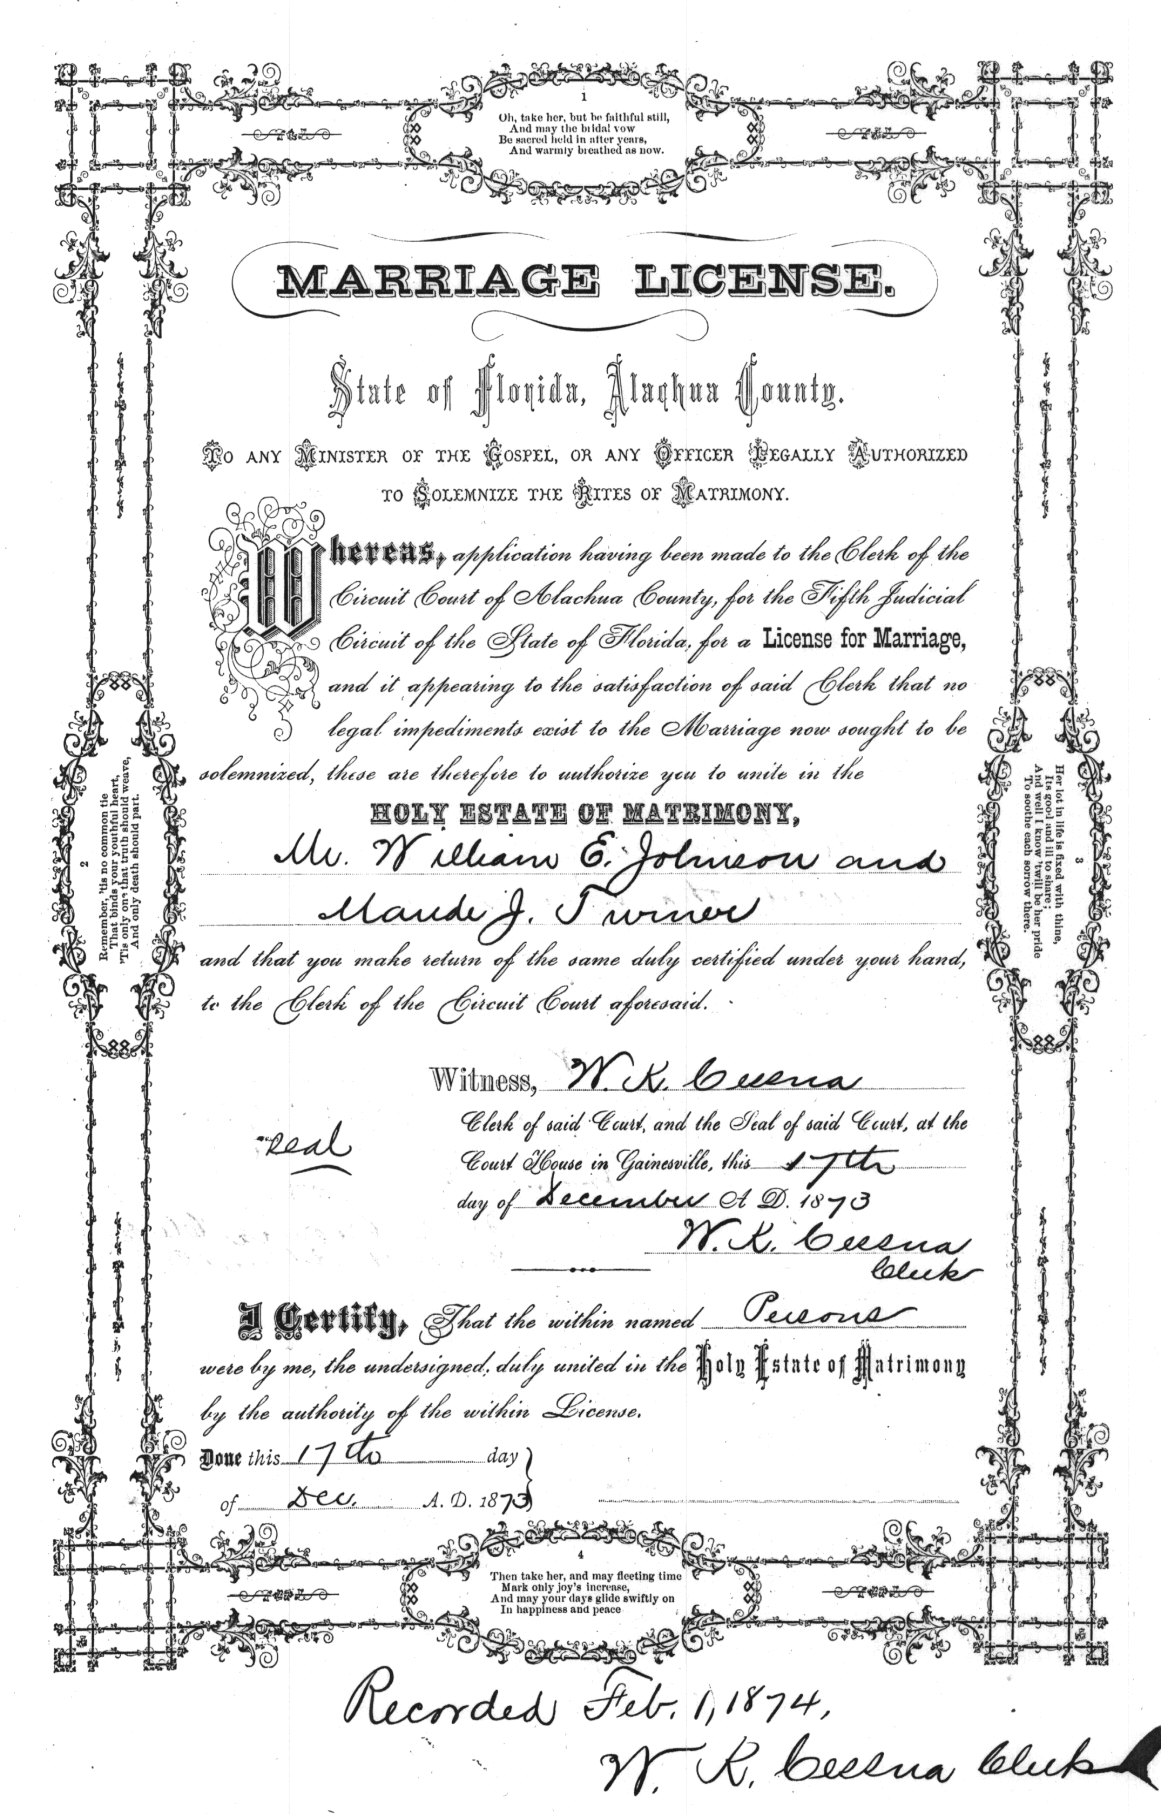 1
Oh, take her, but be faithful still,
And may the bridal vow
Be sacred held in after years,
And warmly breathed as now.
MARRIAGE LICENSE.
State of Florida, Alachua County.
TO ANY MINISTER OF THE GOSPEL, OR ANY OFFICER LEGALLY AUTHORIZED
TO SOLEMNIZE THE RITES OF MATRIMONY.
Whereas, application having been made to the Clerk of the
Circuit Court of Alachua County, for the Fifth Judicial
Circuit of the State of Florida, for a License for Marriage,
and it appearing to the satisfaction of said Clerk that no
legal impediments exist to the Marriage now sought to be
solemnized, these are therefore to authorize you to unite in the
HOLY ESTATE OF MATRIMONY,
Mr. William E. Johnson and
Maude J. Turner
and that you make return of the same duly certified under your hand,
to the Clerk of the Circuit Court aforesaid.
2
Remember, 'tis no common tie
That binds your youthful heart,
'Tis only one that truth should weave,
And only death should part.
3
Her lot in life is fixed with thine,
Its good and ill to share;
And well I know 'twill be her pride
To soothe each sorrow there.
Witness, W. K. Cessna
Clerk of said Court, and the Seal of said Court, at the
Seal
Court House in Gainesville, this 17th
day of December A D. 1873
W. K. Cessna
Clerk
I Certify, That the within named Persons
were by me, the undersigned, duly united in the Holy Estate of Matrimony
by the authority of the within License.
Done this 17th day
of Dec. A. D. 1873
4
Then take her, and may fleeting time
Mark only joy's increase,
And may your days glide swiftly on
In happiness and peace
Recorded Feb. 1, 1874,
W. K. Cessna Clerk